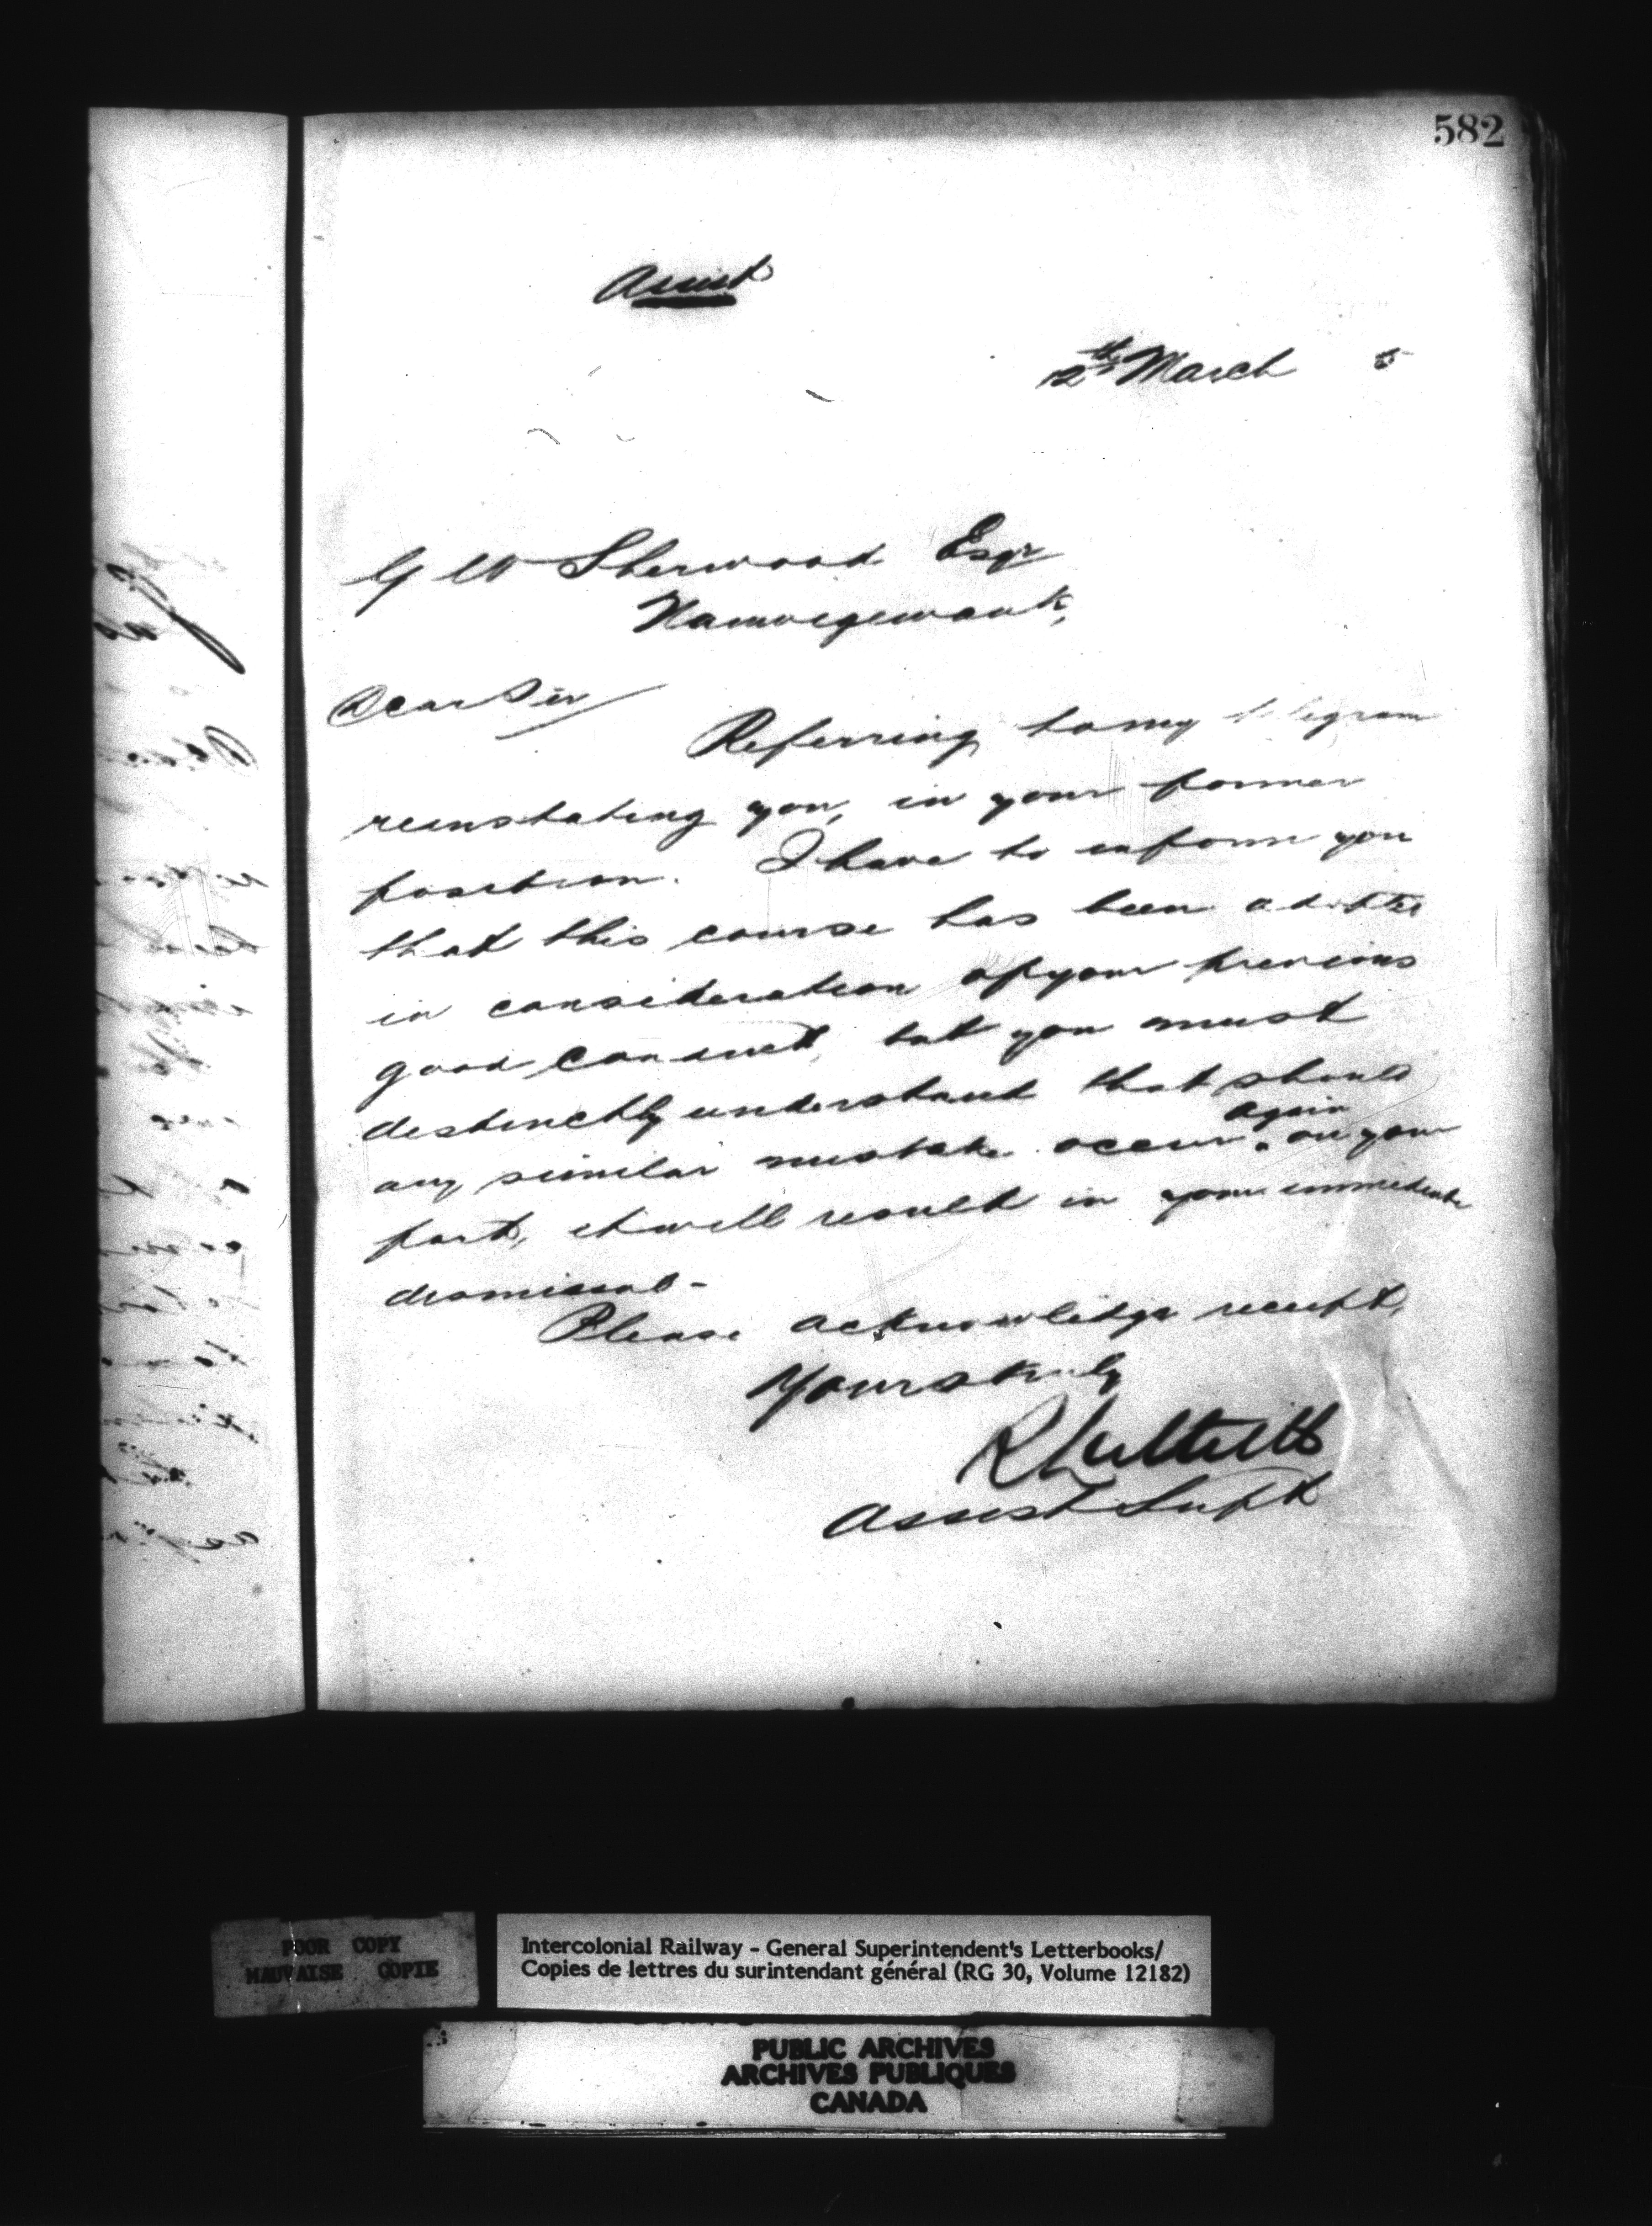 582
Assist
12th March 5
G W Sherwood Esqr
Nauwegewauk,
Dear Sir
Referring to my telegram
reinstating you, in your former
position. I have to inform you
that this course has been adopted
in consideration of your previous
good conduct, but you must
distinctly understand that should
any similar mistake occur again on your
part, it will result in your immediate
dismissal -
Please acknowledge receipt,
Yours truly
R Luttrell
Assist Supt
POOR COPY
MAUVAISE COPIE
Intercolonial Railway - General Superintendent's Letterbooks/
Copies de lettres du surintendant général (RG 30, Volume 12182)
PUBLIC ARCHIVES
ARCHIVES PUBLIQUES
CANADA